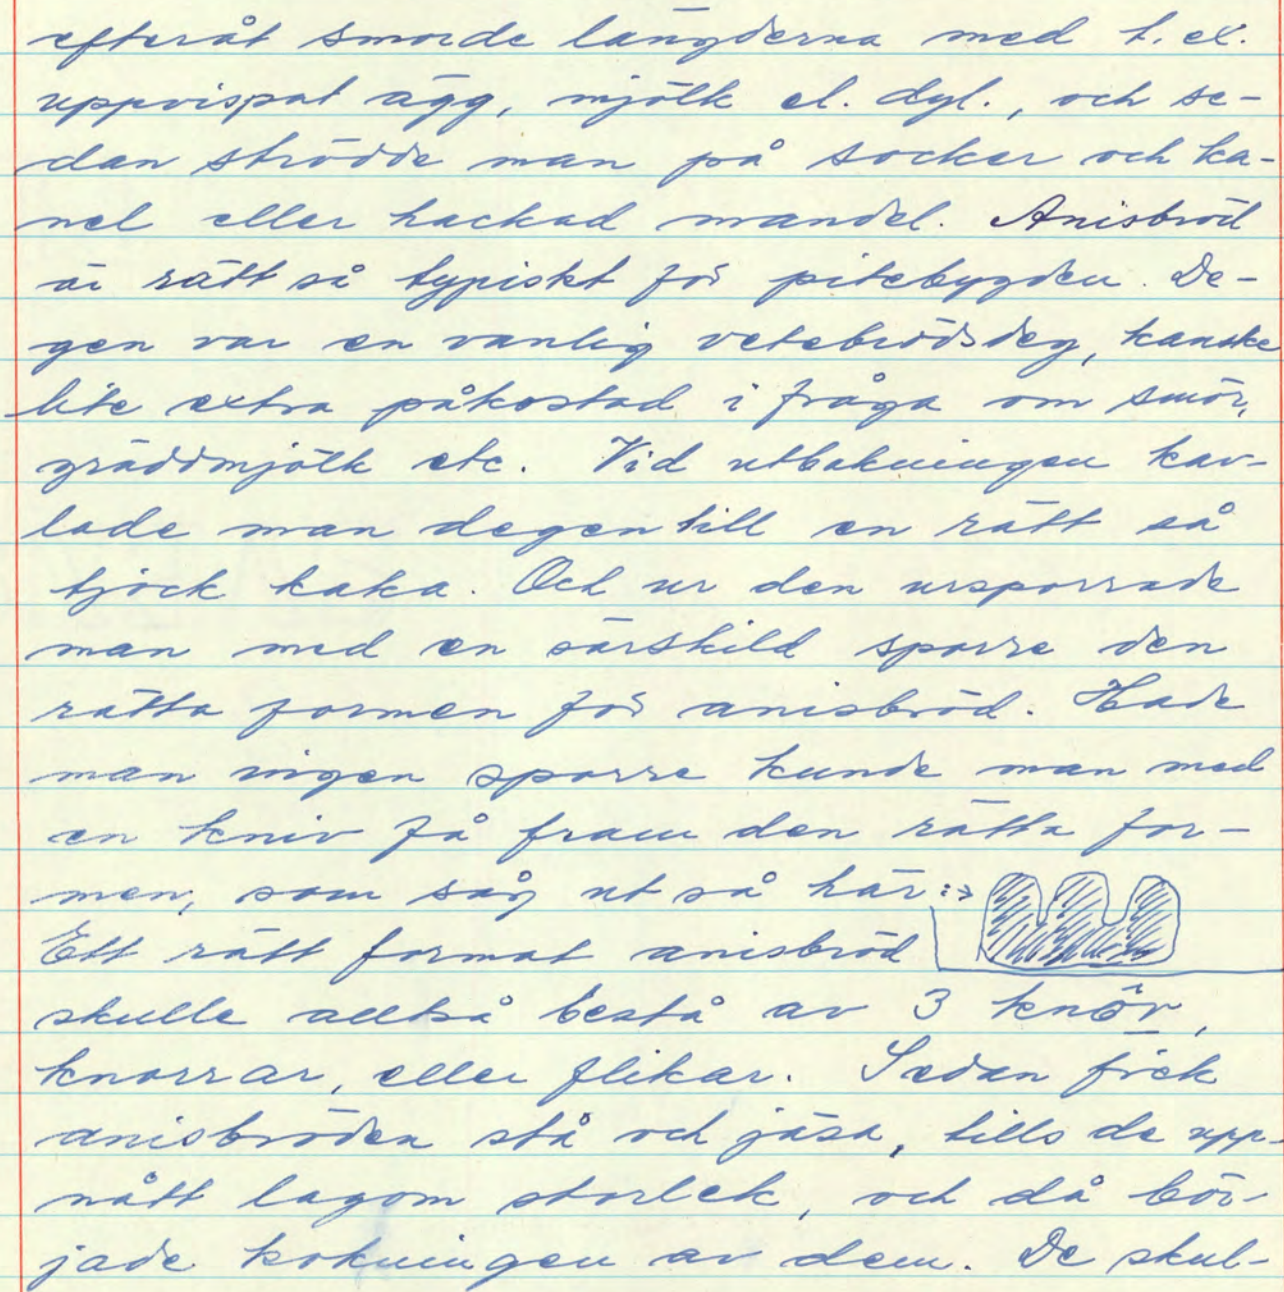 efteråt smorde längderna med t. ex.
uppvispat ägg, mjölk el. dyl., och se-
dan strödde man på socker och ka-
nel eller hackad mandel. Anisbröd
är rätt så typiskt för pitebygden. De-
gen var en vanlig vetebrödsdeg, kanske
lite extra påkostad i fråga om smör,
gräddmjölk etc. Vid utbakningen kav-
lade man degen till en rätt så
tjock kaka. Och ur den ursporrade
man med en särskild sporre den
rätta formen för anisbröd. Hade
man ingen sporre kunde man med
en kniv få fram den rätta for-
men, som såg ut så här :→
Ett rätt format anisbröd
skulle alltså bestå av 3 knör,
knorrar, eller flikar. Sedan fick
anisbröden stå och jäsa, tills de upp-
nått lagom storlek, och då bör-
jade kokningen av dem. De skul-